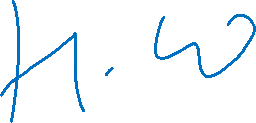 H. W